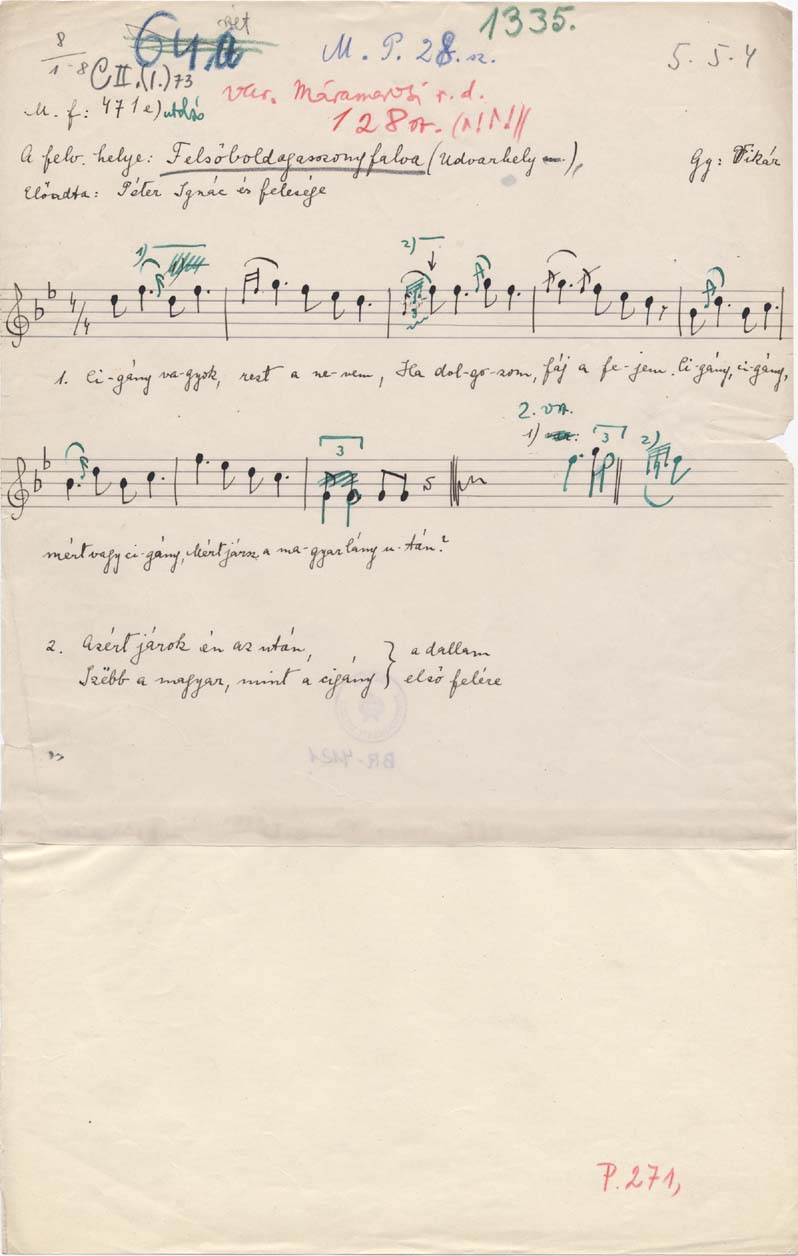 1335.
8
1-8
64.a
M. P. 28. sz.
5. 5. 4
C II. (1.) 73
var. Máramarosi r. d.
M. f: 471 e) utolsó
128 a. (!!!)
A felv. helye: Felsőboldogasszonyfalva (Udvarhely), Gy: Vikár
Előadta: Péter Ignác és felesége
1) 2)
4/4
1. Ci-gány va-gyok, rest a ne-vem, Ha dol-go-zom, fáj a fe-jem. Ci-gány, ci-gány,
2. va.
3 1) 3 2)
mért vagy ci-gány, Mért jársz a ma-gyar lány u-tán?
2. Azért járok én az után, a dallam
Szëbb a magyar, mint a cigány első felére
BR-4121
P. 271,